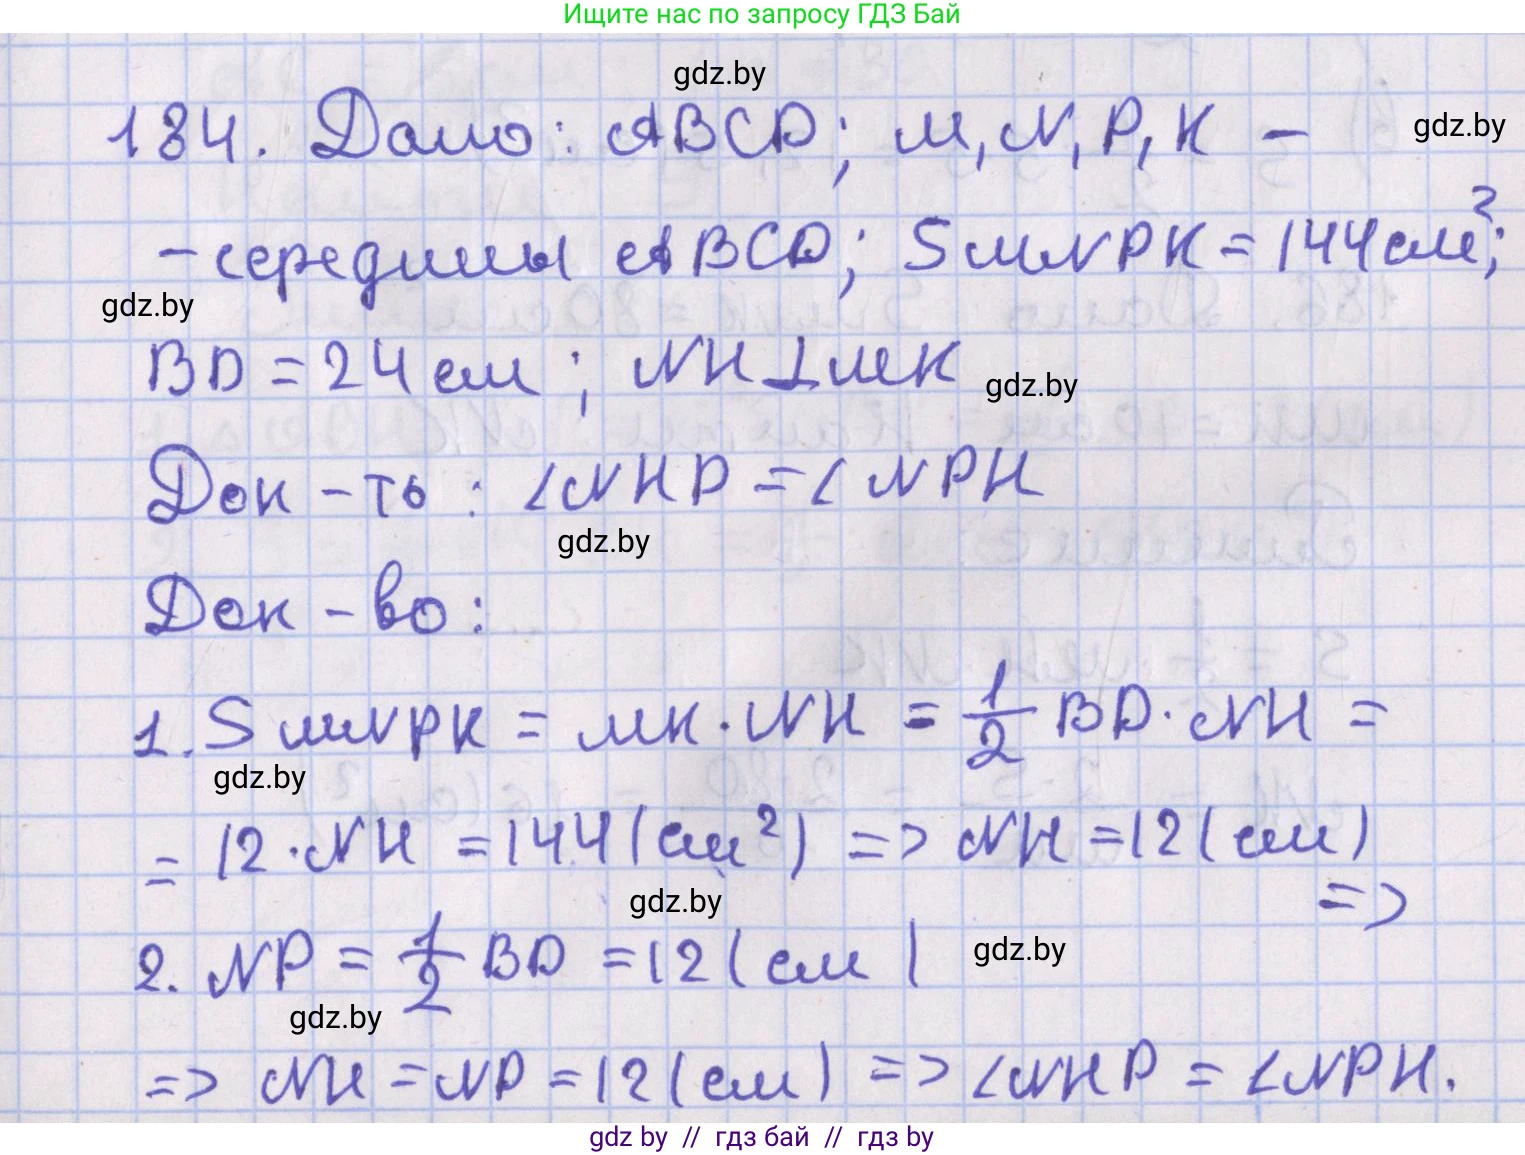 Ищите нас по запросу ГДЗ Бай
gdz.by
184. Дано: ABCD; M, N, P, K –
gdz.by
– середины ABCD; SMNPK = 144 см²;
gdz.by
BD = 24 см; NH ⊥ MK
gdz.by
Док-ть: ∠NHP = ∠NPH
gdz.by
Док-во:
1. SMNPK = MK · NH = 1/2 BD · NH =
gdz.by
= 12 · NH = 144 (см²) => NH = 12 (см)
=>
gdz.by
2. NP = 1/2 BD = 12 (см)
gdz.by
gdz.by
=> NH = NP = 12 (см) => ∠NHP = ∠NPH.
gdz by // гдз бай // гдз by